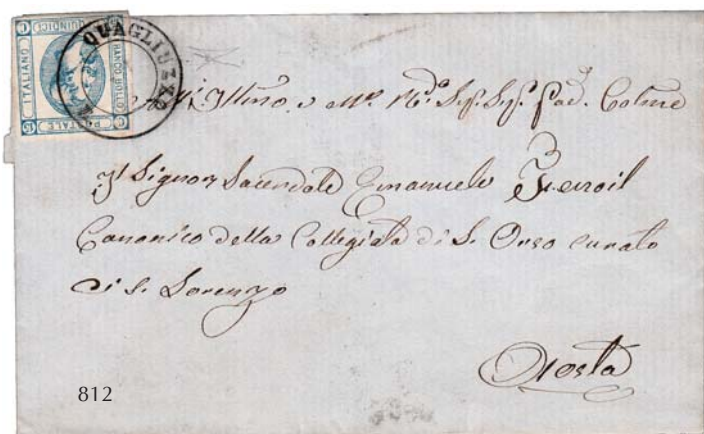 QUAGLIUZZO
C QUINDICI C
FRANCO BOLLO
C 15 POSTALE C 15
ITALIANO
All' Illmo e M. Rdo Sig. Sig. Pad. Colmo
Il Signor Sacerdote Emanuele
Canonico della Collegiata di S. Orso curato
di S. Lorenzo
Aosta
812